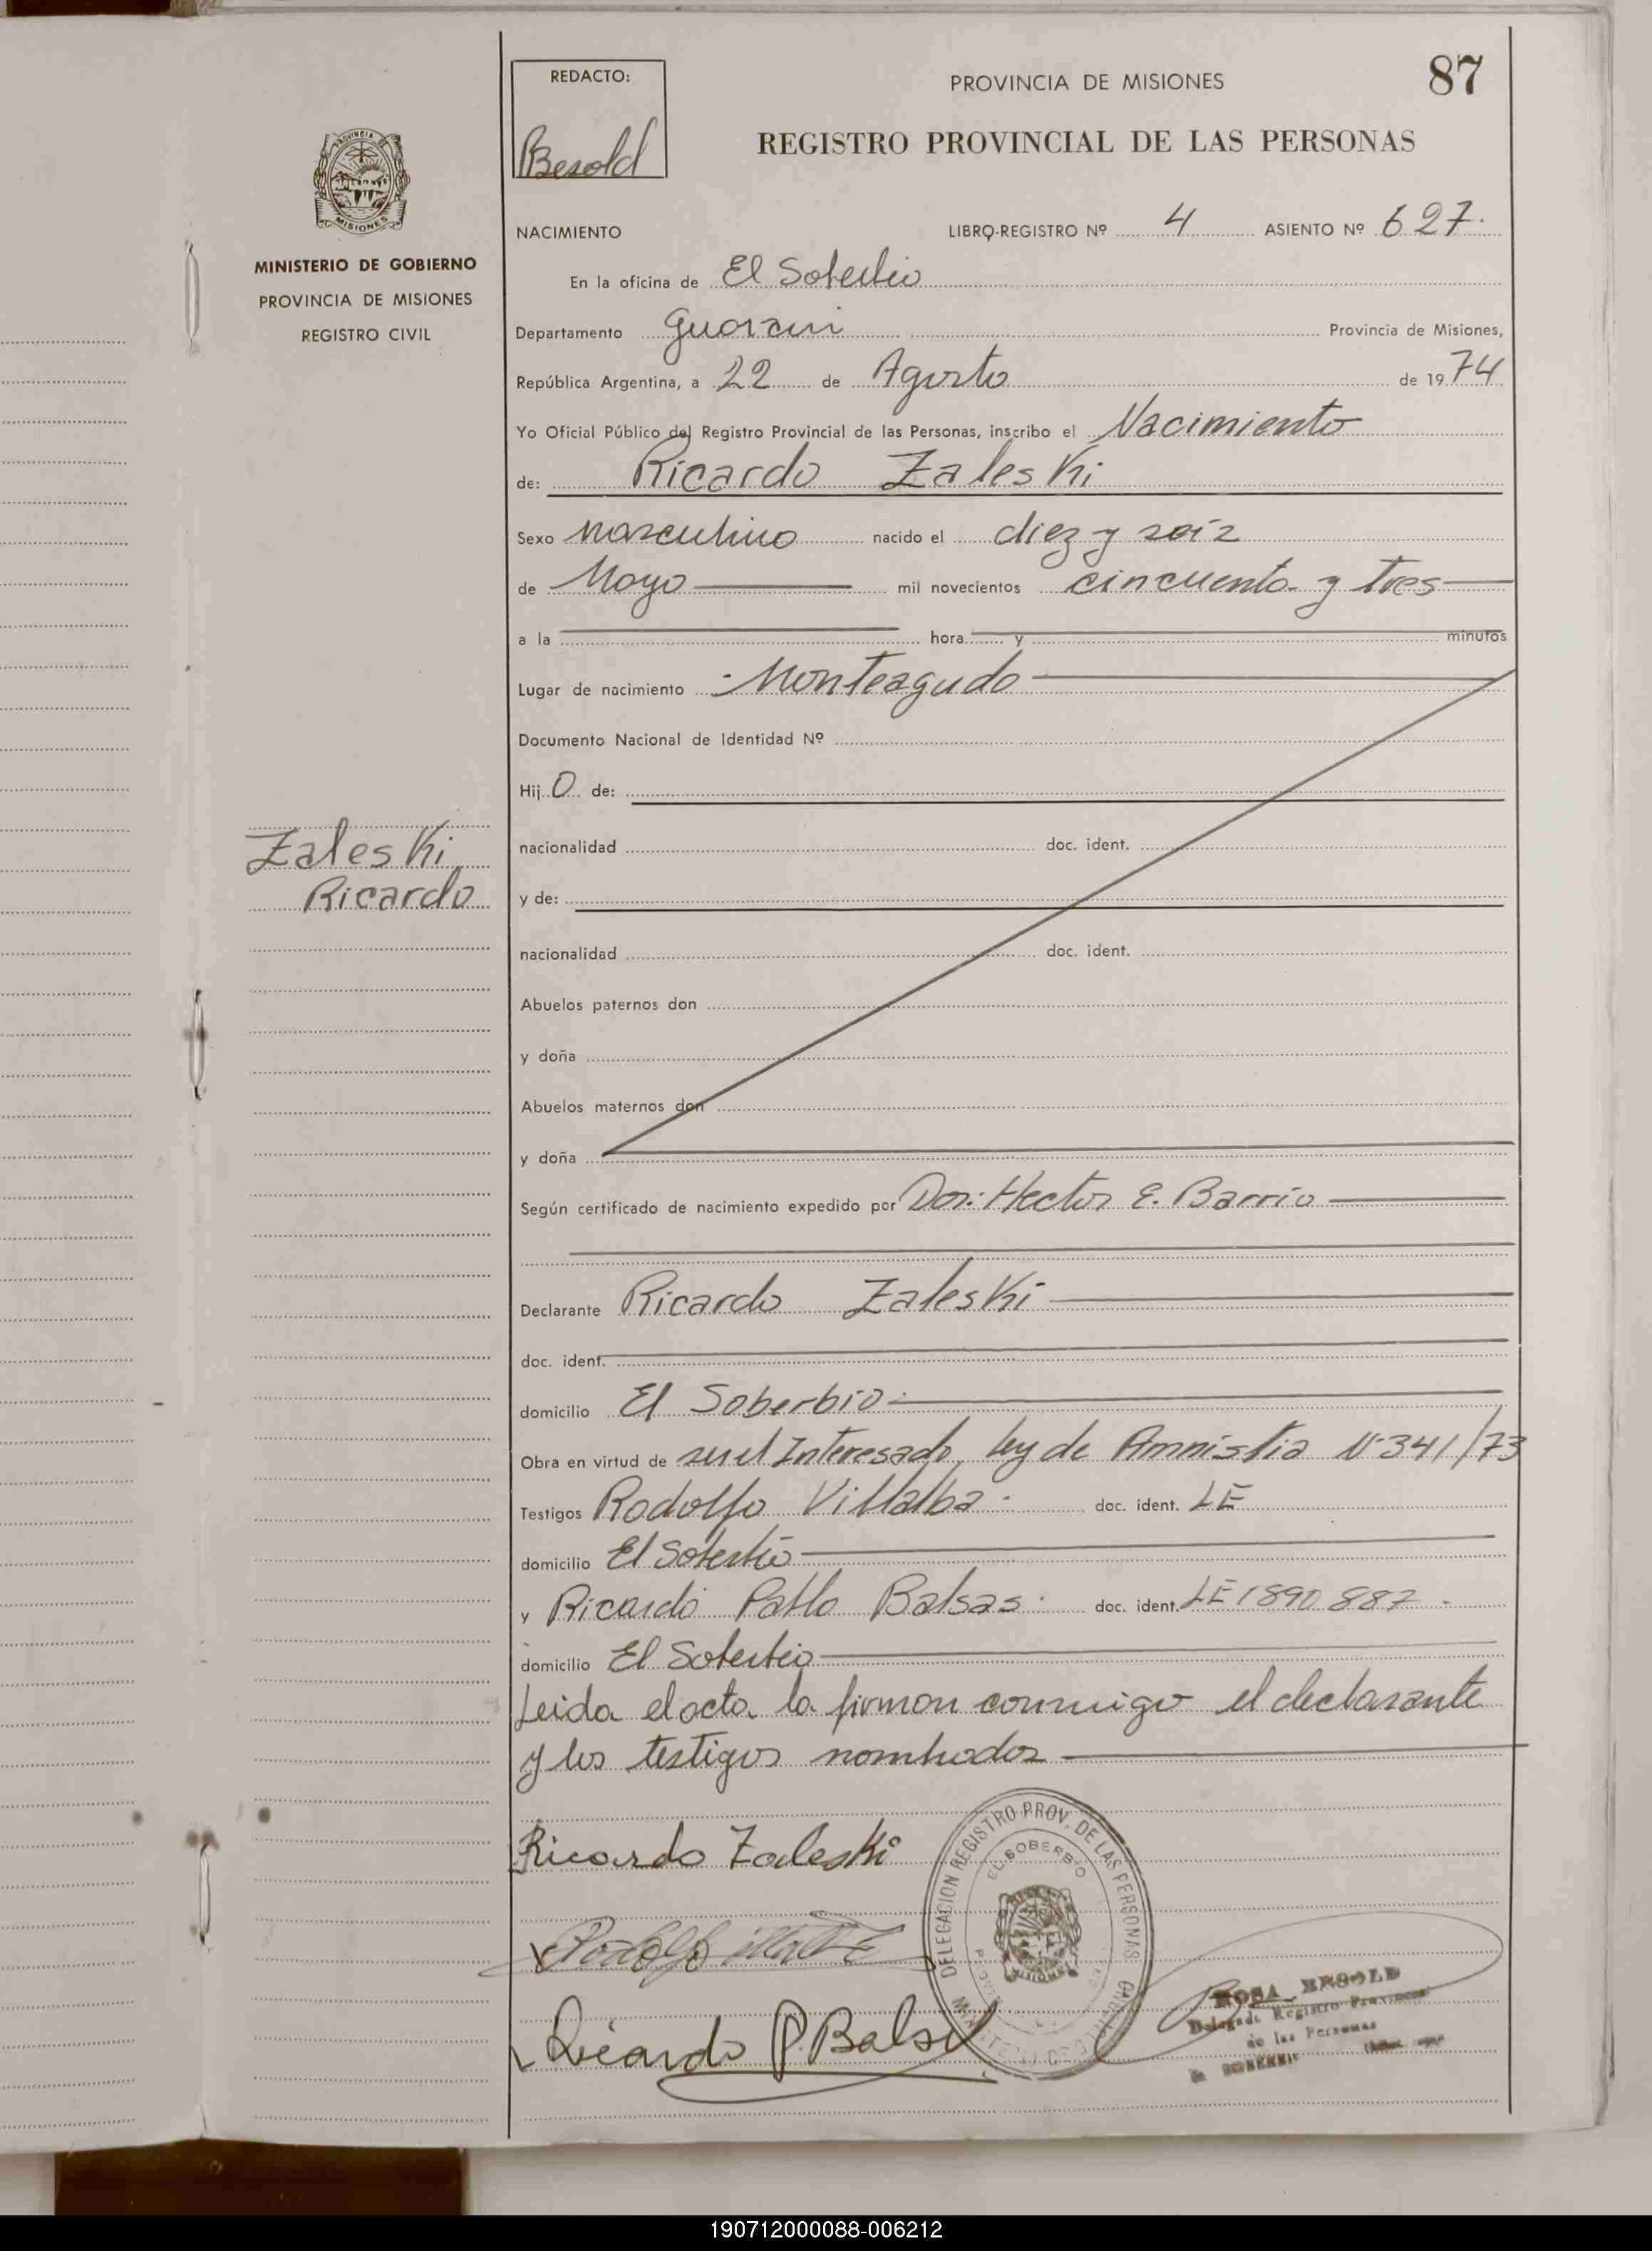 REDACTO:
Besold
PROVINCIA DE MISIONES
87
REGISTRO PROVINCIAL DE LAS PERSONAS
PROVINCIA
MISIONES
MINISTERIO DE GOBIERNO
PROVINCIA DE MISIONES
REGISTRO CIVIL
NACIMIENTO LIBRO-REGISTRO Nº 4 ASIENTO Nº 627.
En la oficina de El Soberbio
Departamento Guarani Provincia de Misiones,
República Argentina, a 22 de Agosto de 1974
Yo Oficial Público del Registro Provincial de las Personas, inscribo el Nacimiento
de: Ricardo Zaleski
Sexo masculino nacido el diez y seiz
de Mayo mil novecientos cincuenta y tres
a la hora y minutos
Lugar de nacimiento Monteagudo
Documento Nacional de Identidad Nº
Hij O de:
Zaleski
Ricardo
nacionalidad doc. ident.
y de:
nacionalidad doc. ident.
Abuelos paternos don
y doña
Abuelos maternos don
y doña
Según certificado de nacimiento expedido por Dor: Hector E. Barrio
Declarante Ricardo Zaleski
doc. ident.
domicilio El Soberbio
Obra en virtud de ser el Interesado, ley de Amnistia Nº 341/73
Testigos Rodolfo Villalba. doc. ident. LE
domicilio El Soberbio
y Ricardo Pablo Balsas. doc. ident. LE 1890 887.
domicilio El Soberbio
Leida el acta la firman conmigo el declarante
y los testigos nombrados
Ricardo Zaleski
DELEGACION REGISTRO PROV. DE LAS PERSONAS
EL SOBERBIO
MISIONES
Ricardo P. Balsa
ROSA BESOLD
Delegada Registro Provincial
de las Personas
SOBERBIO
190712000088-006212